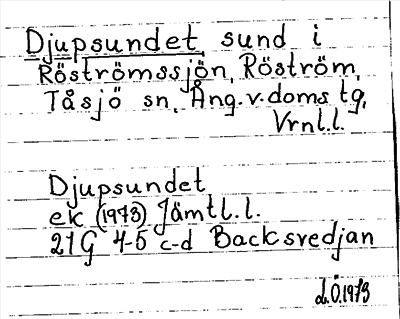 Djupsundet, sund i
Röströmssjön, Röström,
Tåsjö sn, Ång.v.doms tg,
Vrnl.l.
Djupsundet
ek (1973) Jämtl.l.
21G 4-5 c-d Backsvedjan
L.Ö.1973